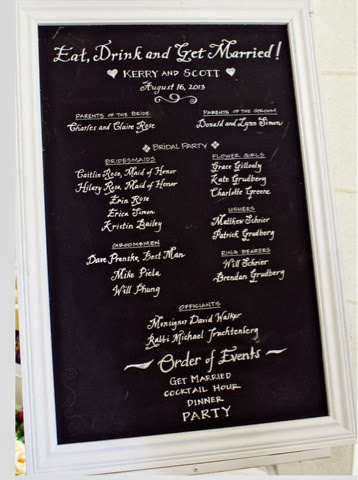 Eat, Drink and Get Married!
Kerry and Scott
August 16, 2013
Parents of the Bride
Charles and Claire Rose
Parents of the Groom
Donald and Lynn Simon
Bridal Party
Bridesmaids
Caitlin Rose, Maid of Honor
Hilary Rose, Maid of Honor
Erin Rose
Erica Simon
Kristin Bailey
Groomsmen
Dave Prenske, Best Man
Mike Piela
Will Phung
Flower Girls
Grace Gillooly
Kate Grudberg
Charlotte Greene
Ushers
Matthew Schrier
Patrick Grudberg
Ring Bearers
Will Schrier
Brendan Grudberg
Officiants
Monsignor David Walker
Rabbi Michael Truchtenberg
Order of Events
Get Married
Cocktail Hour
Dinner
Party